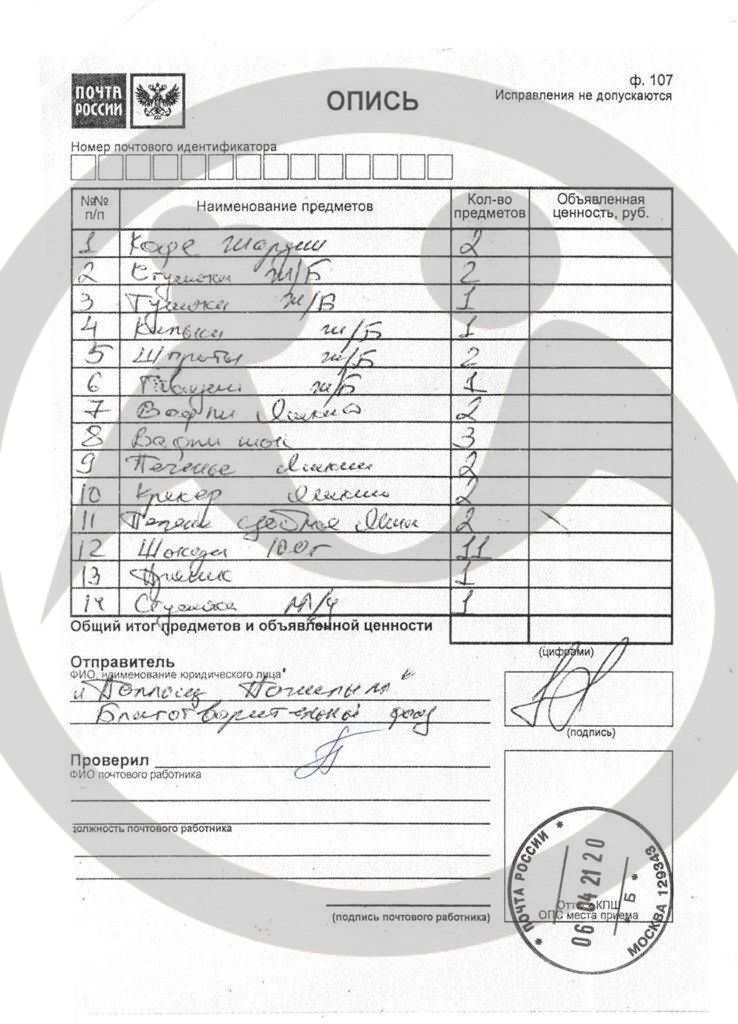 ПОЧТА РОССИИ
ОПИСЬ
ф. 107
Исправления не допускаются
Номер почтового идентификатора
№№ п/п Наименование предметов Кол-во предметов Объявленная ценность, руб.
1 Кофе 2
2 Сгущенка ж/Б 2
3 Тушенка ж/Б 1
4 Кильки ж/Б 1
5 Шпроты ж/Б 2
6 ж/Б 1
7 Вафли 2
8 Вафли шок 3
9 Печенье 2
10 Крекер 2
11 сдобное 2
12 Шоколад 100г 11
13 Пряник 1
14 Сгущенка М/у 1
Общий итог предметов и объявленной ценности
(цифрами)
Отправитель
ФИО, наименование юридического лица
" Помощь Пожилым "
Благотворительный фонд
(подпись)
Проверил
ФИО почтового работника
должность почтового работника
(подпись почтового работника)
Оттиск КПШ
ОПС места приема
* ПОЧТА РОССИИ *
06 04 21 20
* Б *
МОСКВА 129343